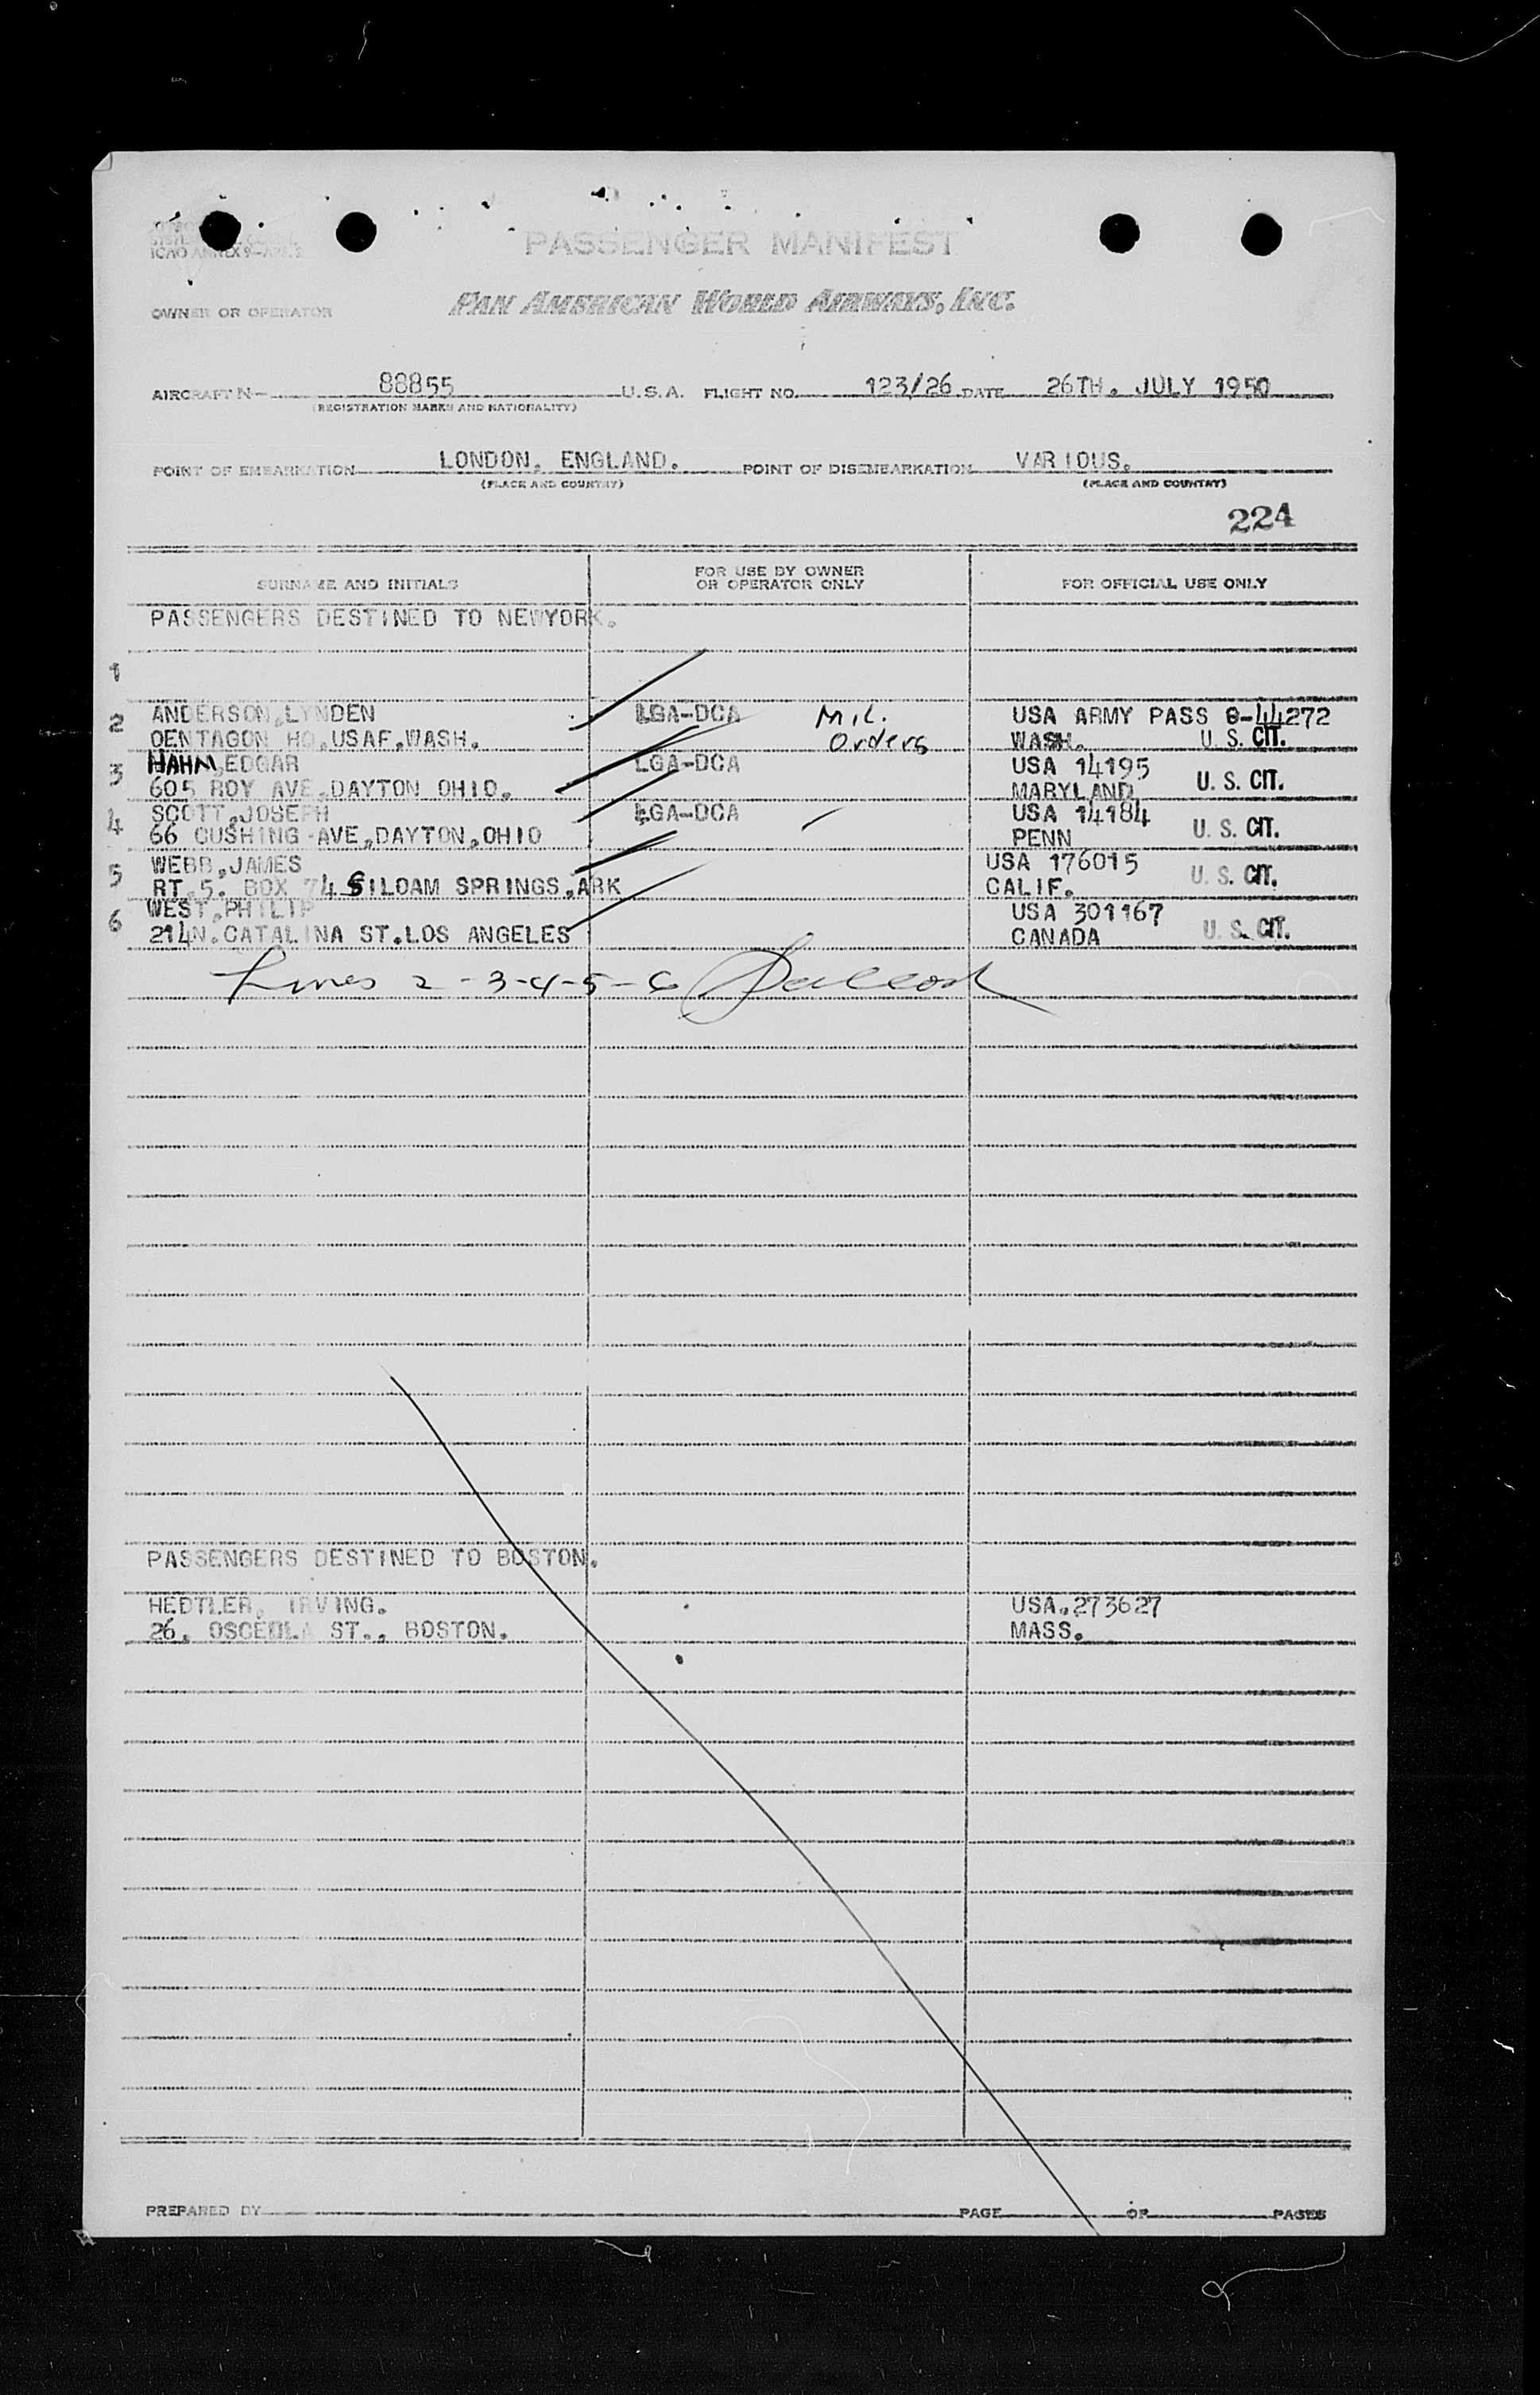 ICAO ANNEX 9
PASSENGER MANIFEST
OWNER OR OPERATOR PAN AMERICAN WORLD AIRWAYS, INC.
AIRCRAFT N- 88855 U.S.A. FLIGHT NO. 123/26 DATE 26TH. JULY 1950
(REGISTRATION MARKS AND NATIONALITY)
POINT OF EMBARKATION LONDON, ENGLAND. POINT OF DISEMBARKATION VARIOUS.
(PLACE AND COUNTRY) (PLACE AND COUNTRY)
224
SURNAME AND INITIALS FOR USE BY OWNER OR OPERATOR ONLY FOR OFFICIAL USE ONLY
PASSENGERS DESTINED TO NEWYORK.
1
2 ANDERSON,LYNDEN LGA-DCA Mil. USA ARMY PASS 44272
OENTAGON HQ,USAF,WASH. Orders WASH. U. S. CIT.
3 HAHN,EDGAR LGA-DCA USA 14195
605 ROY AVE,DAYTON OHIO. MARYLAND U. S. CIT.
4 SCOTT,JOSEPH LGA-DCA USA 14184
66 CUSHING AVE,DAYTON,OHIO PENN U. S. CIT.
5 WEBB,JAMES USA 176015
RT.5. BOX 74 SILOAM SPRINGS,ARK CALIF. U. S. CIT.
6 WEST,PHILIP USA 301167
214N.CATALINA ST.LOS ANGELES CANADA U. S. CIT.
Lines 2-3-4-5-6
PASSENGERS DESTINED TO BOSTON.
HEDTLER, IRVING. USA.273627
26, OSCEOLA ST., BOSTON. MASS.
PREPARED BY PAGE OF PAGES